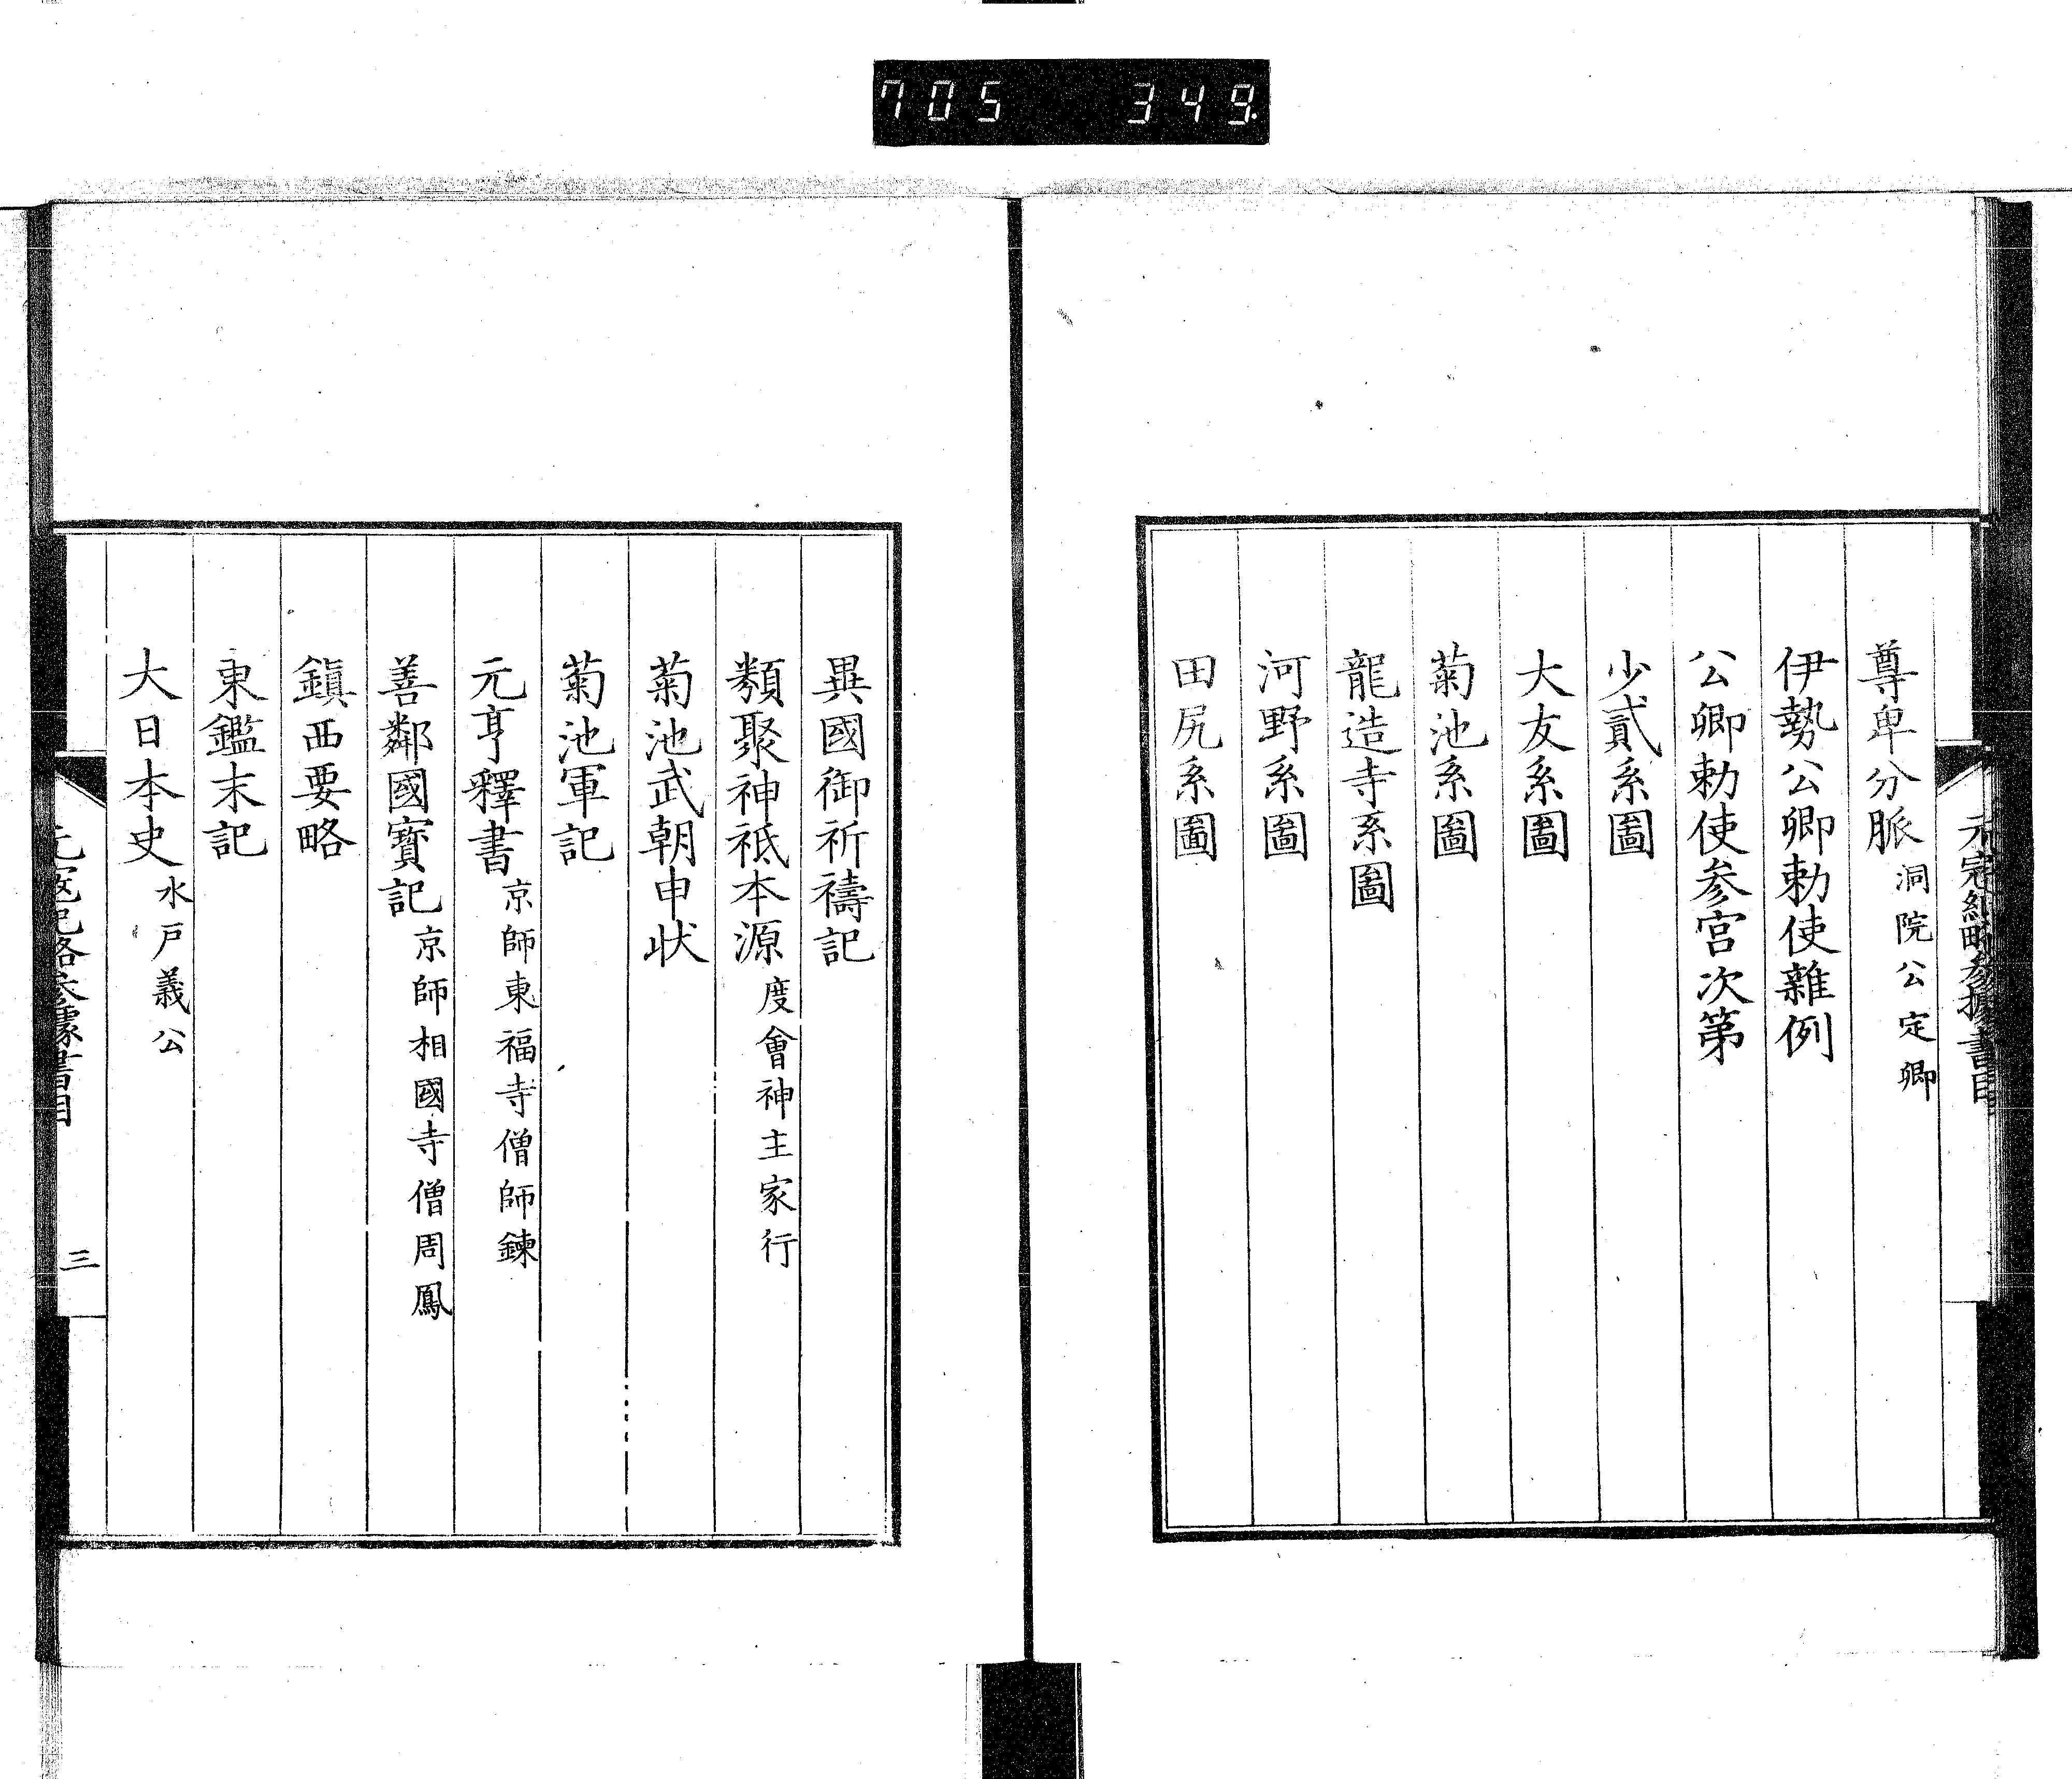 705 349.
元寇紀略參據書目
尊卑分脈 洞院公定卿
伊勢公卿勅使雜例
公卿勅使参宮次第
少貳系圖
大友系圖
菊池系圖
龍造寺系圖
河野系圖
田尻系圖
異國御祈禱記
類聚神祗本源 度會神主家行
菊池武朝申状
菊池軍記
元亨釋書 京師東福寺僧師鍊
善鄰國寳記 京師相國寺僧周鳳
鎮西要略
東鑑末記
大日本史 水戸義公
元寇紀略參據書目 三